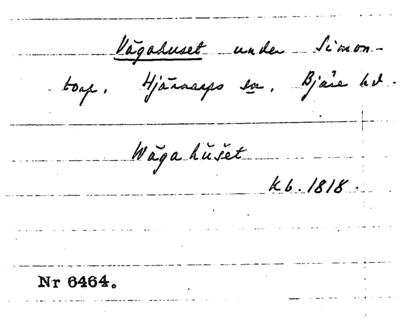 Vågahuset under Simon-
torp, Hjärnarps sn, Bjäre hd.
Wåga huset
Kb. 1818.
Nr 6464.